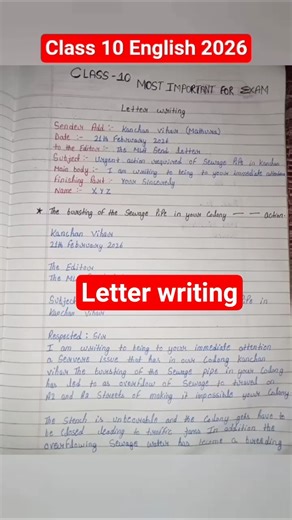 Class 10 English 2026
CLASS-10
MOST IMPORTANT FOR EXAM
Letter writing
Sender Add :- Kanchan Vihar (Mathura)
Date :- 21th February 2026
to the Editor :- The Most letter
Subject :- Urgent action required of Sewage Pipe in Kanchan
Main body :- I am writing to bring to your immediate attention
Finishing Part :- Your Sincerely
Name :- XYZ
* The bursting of the Sewage Pipe in your Colony — — action.
Kanchan Vihar
21th February 2026
The Editor
The
Letter writing
Pipe in
Kanchan Vihar
Respected : Sir
I am writing to bring to your immediate attention
a Servere issue that has in our Colony Kanchan
Vihar The bursting of the Sewage pipe in your Colony
has led to as overflow of Sewage to
A2 and A3 Streets of making it impossible your Colony
The Stench is unbearable and the Colony gets have to
be closed leading to traffic Jams In addition the
overflowing Sewage water has become a breeding